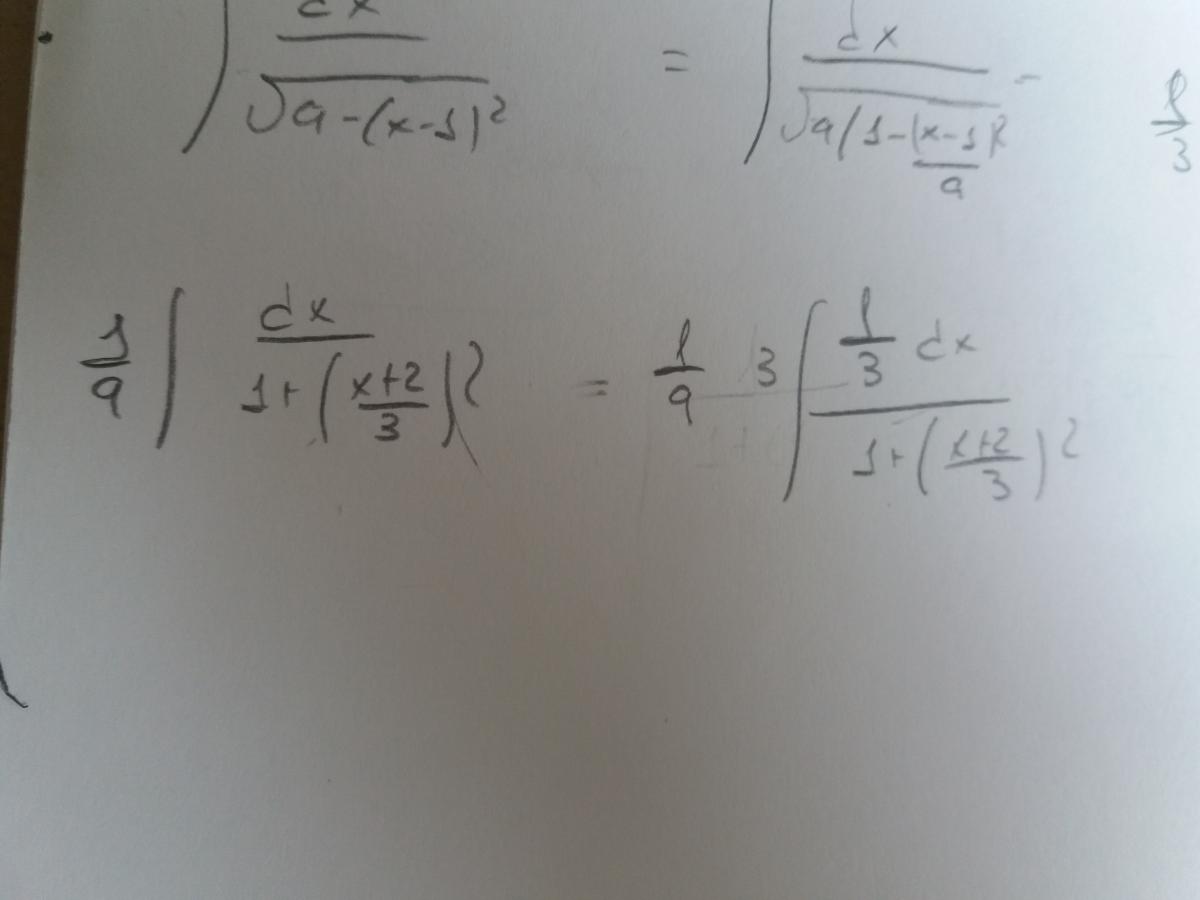 ∫ dx / √(9-(x-1)²) = ∫ dx / √(9(1-(x-1)²/9)) - 1/3
1/9 ∫ dx / (1+((x+2)/3)²) = 1/9 3 ∫ 1/3 dx / (1+((x+2)/3)²)